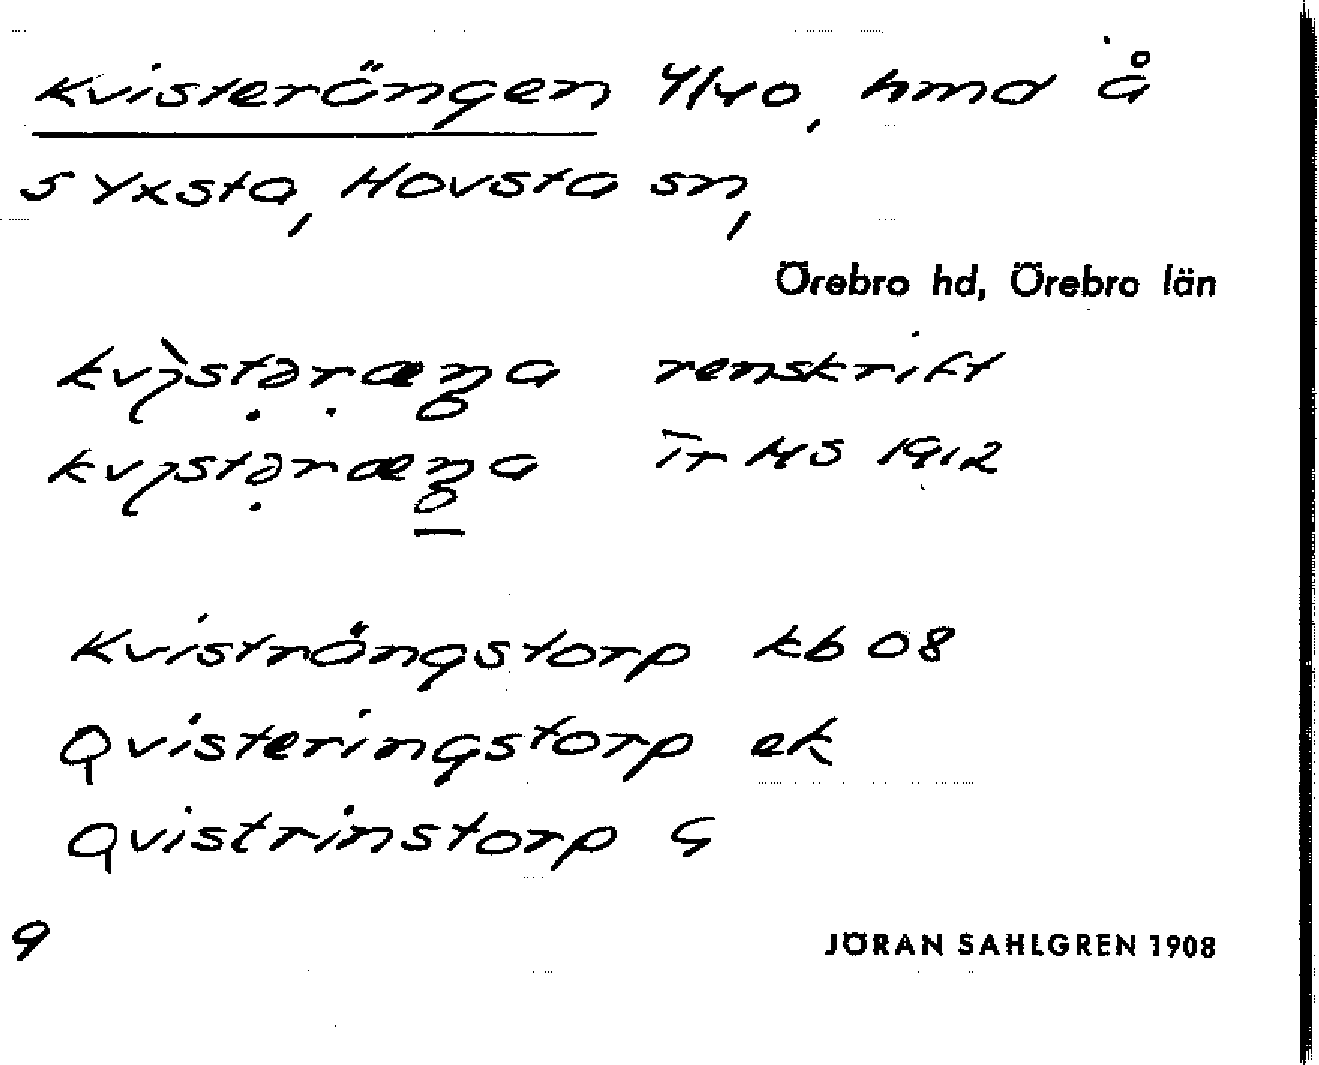 Kvisterängen 4/40, hmd å
S Yxsta, Hovsta sn,
Örebro hd, Örebro län
renskrift
HS 1912
Kvisträngstorp kb 08
Qvisteringstorp ek
Qvistrinstorp G
9
JÖRAN SAHLGREN 1908